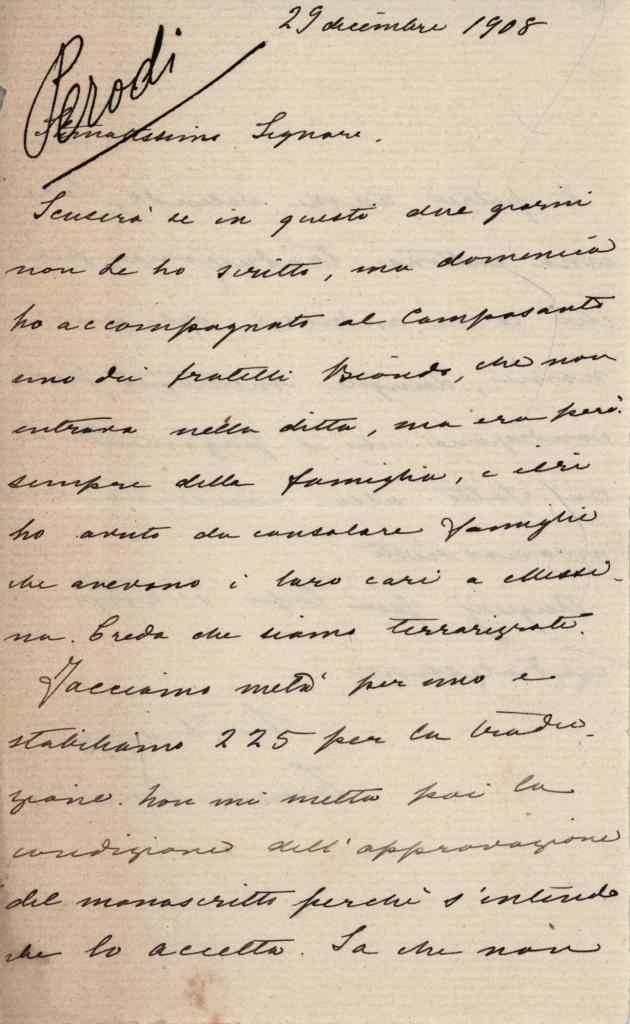 29 dicembre 1908
Perodi
Stimatissimo Signore.
Scuserà se in questi due giorni
non Le ho scritto, ma domenica
ho accompagnato al Camposanto
uno dei fratelli Biondo, che non
entrava nella ditta, ma era però
sempre della famiglia, e ieri
ho avuto da consolare famiglie
che avevano i loro cari a Messi-
na. Creda che siamo terrorizzati.
Facciamo metà per uno e
stabiliamo 225 per la tradu-
zione. Non mi metta poi la
condizione dell'approvazione
del manoscritto perchè s'intende
che lo accetta. Sa che non